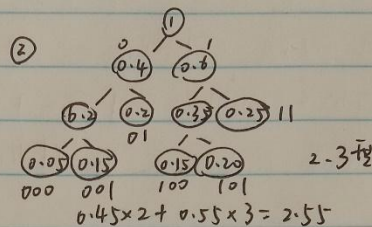 ②
1
0 1
0.4 0.6
0.2 0.2 0.35 0.25 11
01
0.05 0.15 0.15 0.20 2.3
000 001 100 101
0.45×2+0.55×3=2.55